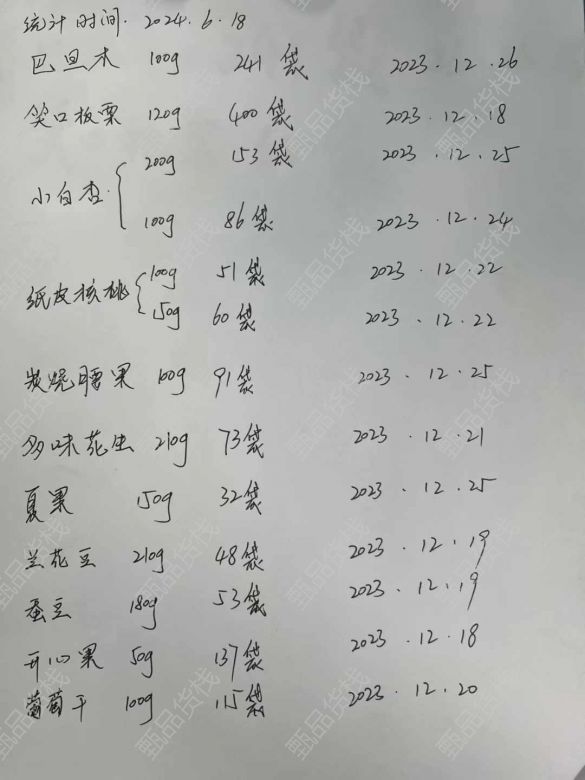 统计时间. 2024.6.18
巴旦木 100g 241袋 2023.12.26
笑口板栗 120g 400袋 2023.12.18
200g 153袋 2023.12.25
小白杏
100g 86袋 2023.12.24
100g 51袋 2023.12.22
纸皮核桃
150g 60袋 2023.12.22
炭烧腰果 100g 91袋 2023.12.25
多味花生 210g 73袋 2023.12.21
夏果 150g 32袋 2023.12.25
兰花豆 210g 48袋 2023.12.19
蚕豆 180g 53袋 2023.12.19
开心果 50g 137袋 2023.12.18
葡萄干 100g 115袋 2023.12.20
甄品货栈